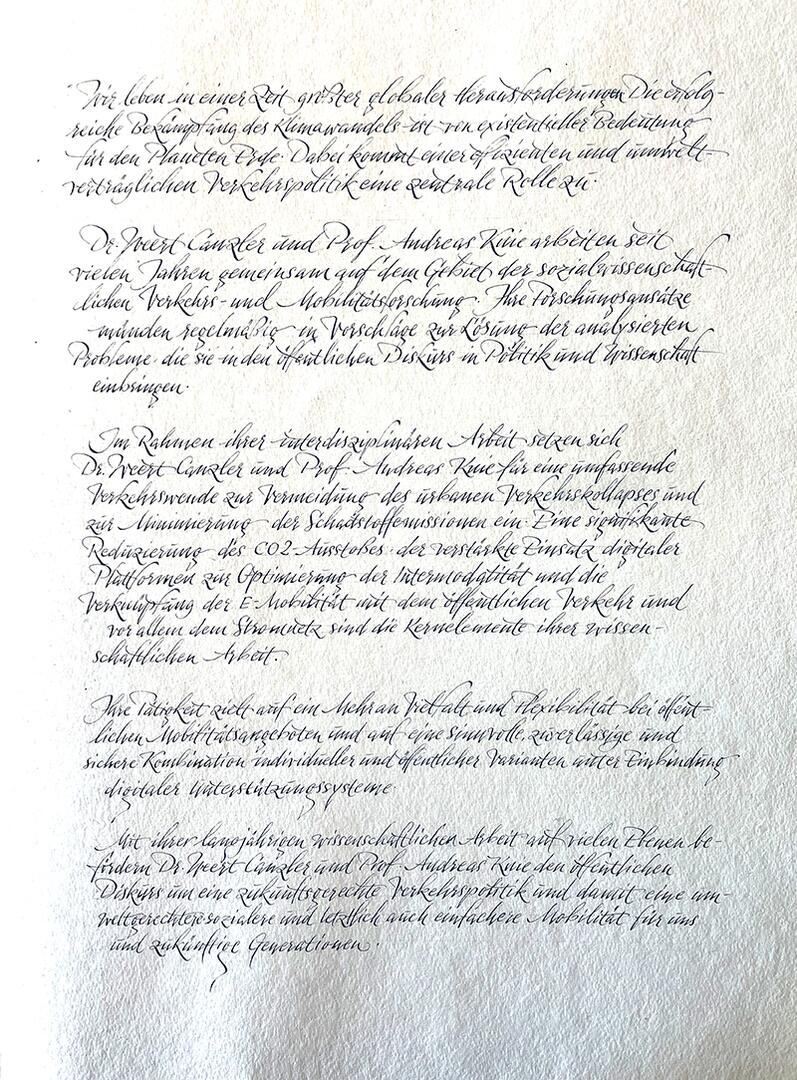 Wir leben in einer Zeit größter globaler Herausforderungen. Die erfolg-
reiche Bekämpfung des Klimawandels ist von existentieller Bedeutung
für den Planeten Erde. Dabei kommt einer effizienten und umwelt-
verträglichen Verkehrspolitik eine zentrale Rolle zu.
Dr. Weert Canzler und Prof. Andreas Knie arbeiten seit
vielen Jahren gemeinsam auf dem Gebiet der sozialwissenschaft-
lichen Verkehrs- und Mobilitätsforschung. Ihre Forschungsansätze
münden regelmäßig in Vorschläge zur Lösung der analysierten
Probleme, die sie in den öffentlichen Diskurs in Politik und Wissenschaft
einbringen.
Im Rahmen ihrer interdisziplinären Arbeit setzen sich
Dr. Weert Canzler und Prof. Andreas Knie für eine umfassende
Verkehrswende zur Vermeidung des urbanen Verkehrskollapses und
zur Minimierung der Schadstoffemissionen ein. Eine signifikante
Reduzierung des CO2-Ausstoßes, der verstärkte Einsatz digitaler
Plattformen zur Optimierung der Intermodalität und die
Verknüpfung der E-Mobilität mit dem öffentlichen Verkehr und
vor allem dem Stromnetz sind die Kernelemente ihrer wissen-
schaftlichen Arbeit.
Ihre Tätigkeit zielt auf ein Mehr an Vielfalt und Flexibilität bei öffent-
lichen Mobilitätsangeboten und auf eine sinnvolle, zuverlässige und
sichere Kombination individueller und öffentlicher Varianten unter Einbindung
digitaler Unterstützungssysteme.
Mit ihrer langjährigen wissenschaftlichen Arbeit auf vielen Ebenen be-
fördern Dr. Weert Canzler und Prof. Andreas Knie den öffentlichen
Diskurs um eine zukunftsgerechte Verkehrspolitik und damit eine um-
weltgerechtere, sozialere und letztlich auch einfachere Mobilität für uns
und zukünftige Generationen.